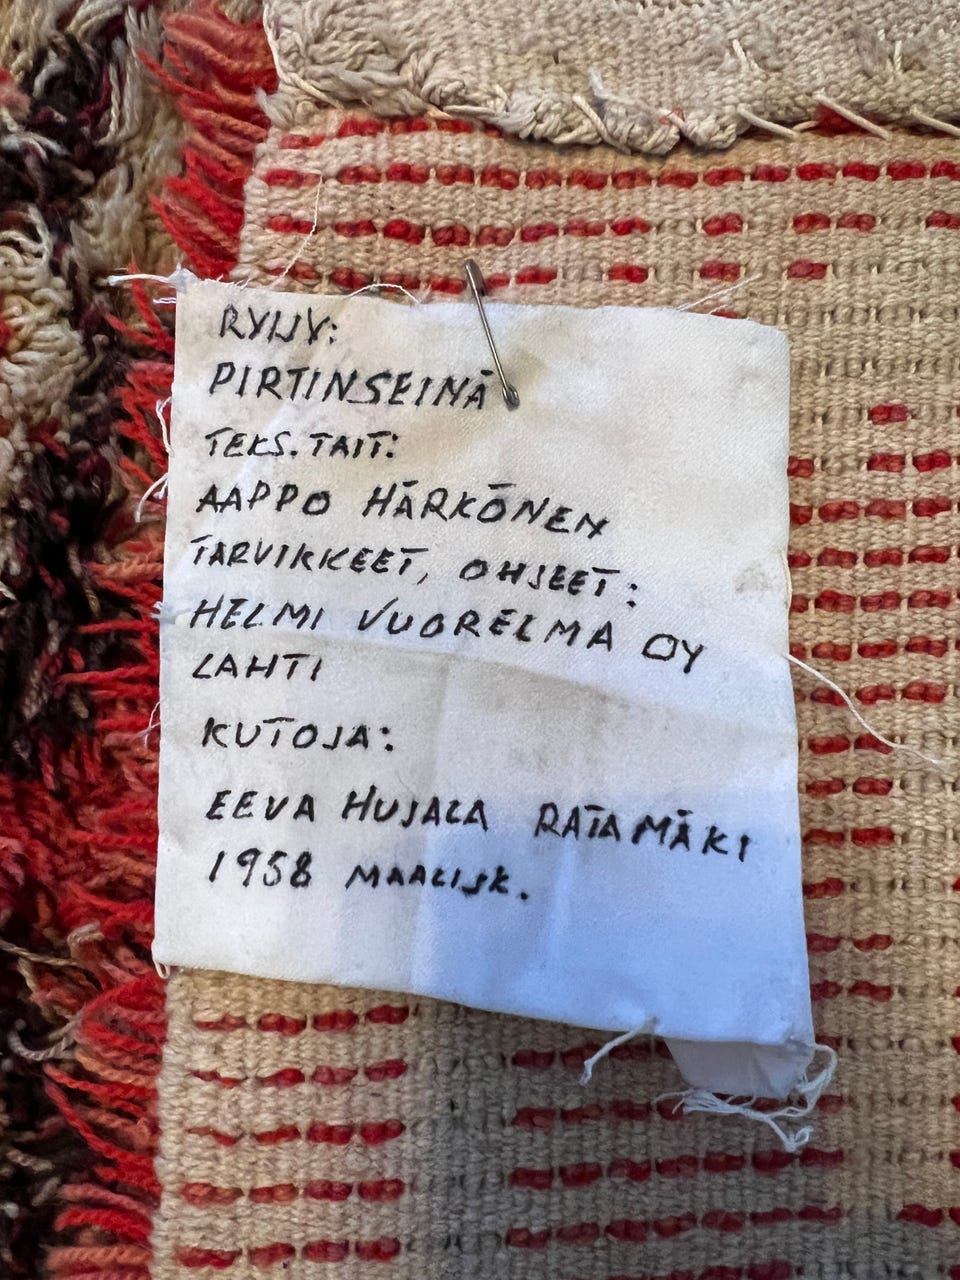 RYIJY:
PIRTINSEINÄ
TEKS.TAIT:
AAPPO HÄRKÖNEN
TARVIKKEET, OHJEET:
HELMI VUORELMA OY
LAHTI
KUTOJA:
EEVA HUJALA RATAMÄKI
1958 MAALISK.